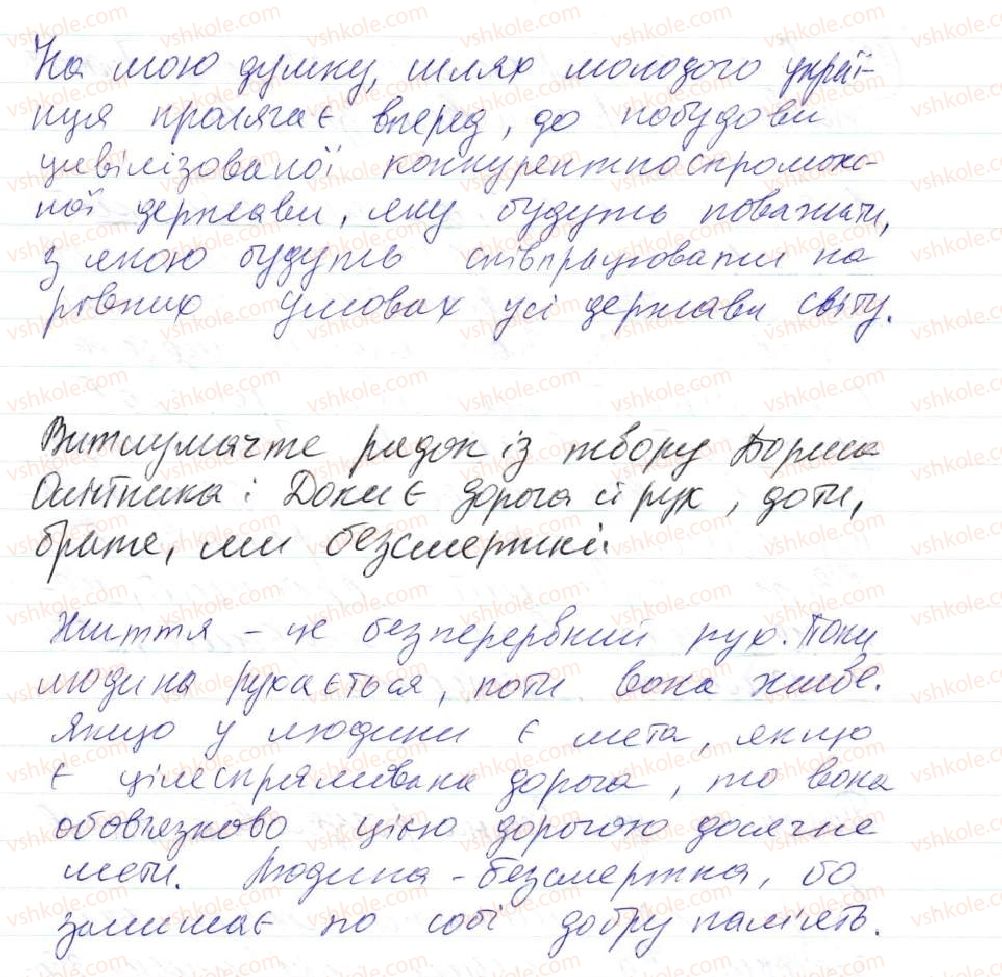 На мою думку, шлях молодого украї-
нця пролягає вперед, до побудови
цивілізованої конкурентноспромож-
ної держави, яку будуть поважати,
з якою будуть співпрацювати на
рівних умовах усі держави світу.
Витлумачте рядок із твору Бориса
Олійника: Доки є дорога й рух, доти,
брате, ми безсмертні.
Життя – це безперервний рух. Поки
людина рухається, поти вона живе.
Якщо у людини є мета, якщо
є цілеспрямована дорога, то вона
обов'язково цією дорогою досягне
мети. Людина – безсмертна, бо
залишає по собі добру пам'ять.